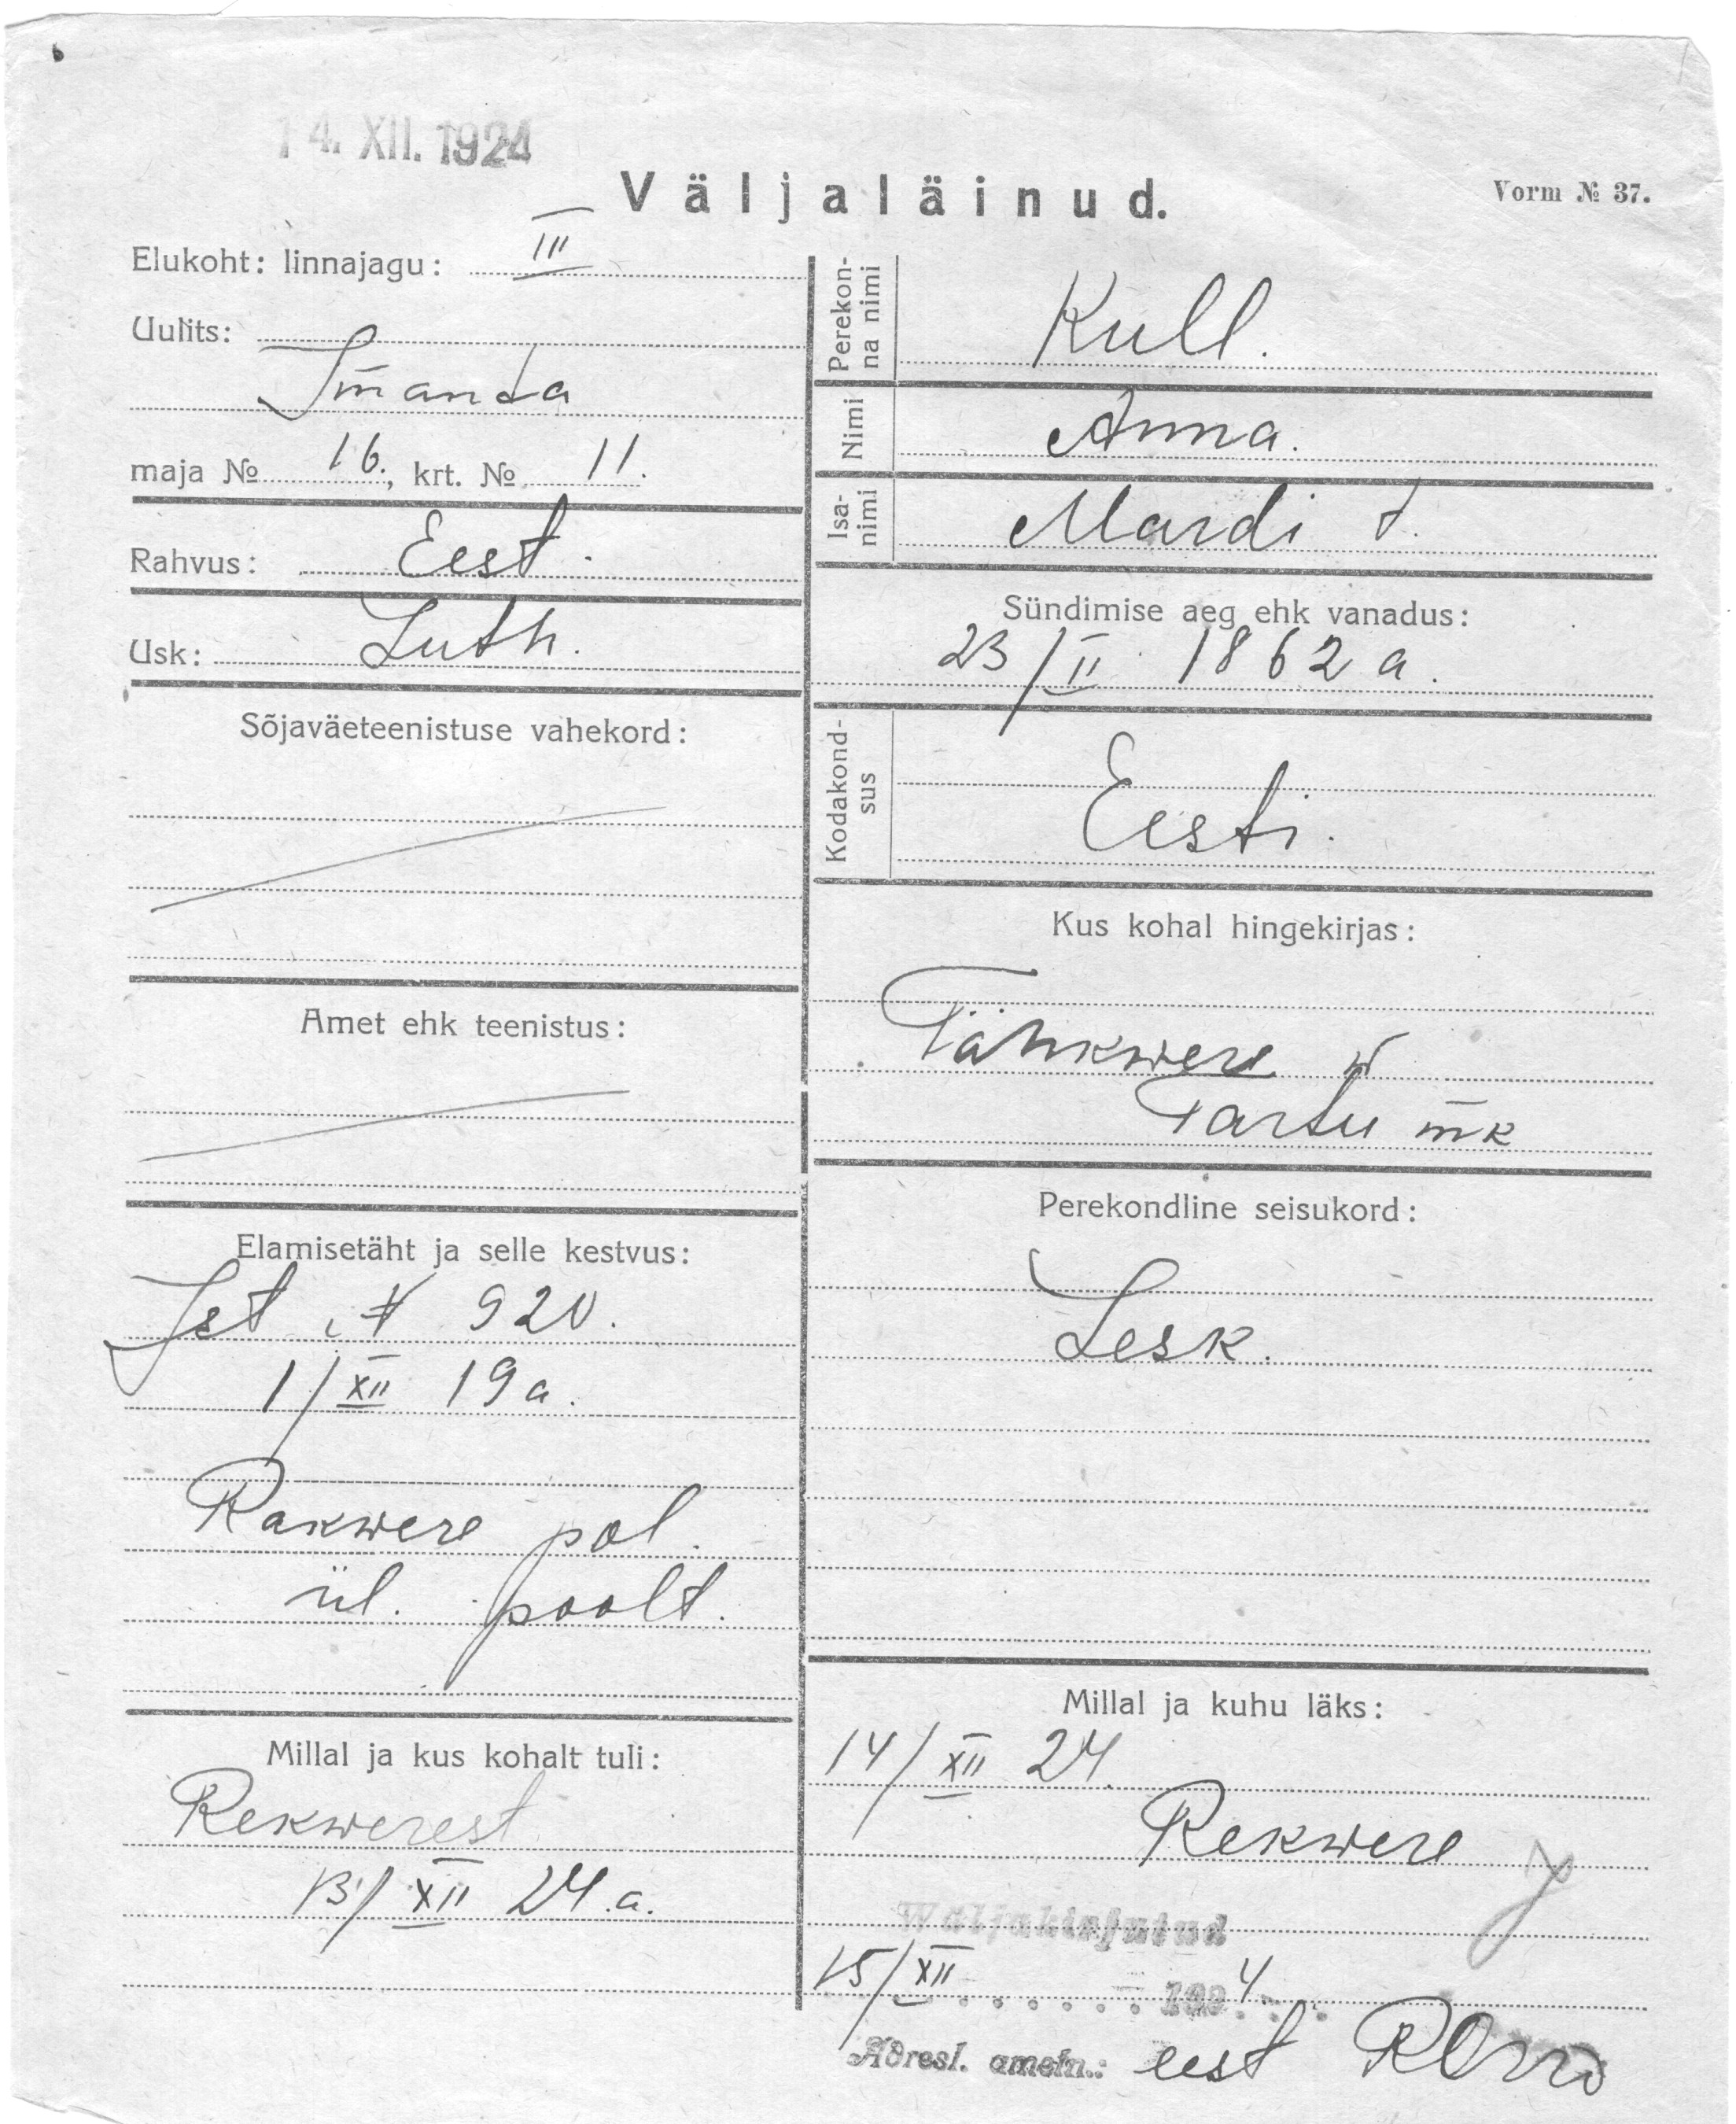 14. XII. 1924
Väljaläinud.
Vorm № 37.
Elukoht: linnajagu: III
Uulits:
Imanta
maja № 16., krt. № 11.
Rahvus: Eest.
Usk: Luth.
Sõjaväeteenistuse vahekord:
Amet ehk teenistus:
Elamisetäht ja selle kestvus:
Ist. № 920.
1/XII 19 a.
Rakwere pol.
ül. poolt.
Millal ja kus kohalt tuli:
Rekwerest
13/XII 24.a.
Perekon-
na nimi
Kull.
Nimi
Anna.
Isa-
nimi
Mardi t.
Sündimise aeg ehk vanadus:
23/II 1862 a.
Kodakond-
sus
Eesti.
Kus kohal hingekirjas:
Tähkwere w
Tartu mk
Perekondline seisukord:
Lesk.
Millal ja kuhu läks:
14/XII 24.
Rekwere
Wäljakirjutud
15/XII 1924
Adresl. ametn.: eest